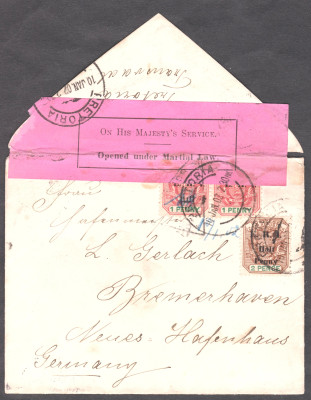 Transvaal
Pretoria
PRETORIA
10 JAN.02
ON HIS MAJESTY'S SERVICE.
Opened under Martial Law.
PRETORIA
1 PENNY
1 PENNY
Herrn
Hafenmeister
L. Gerlach
E.R.I.
Half
Penny
2 PENCE
Bremerhaven
Neues-Hafenhaus
Germany